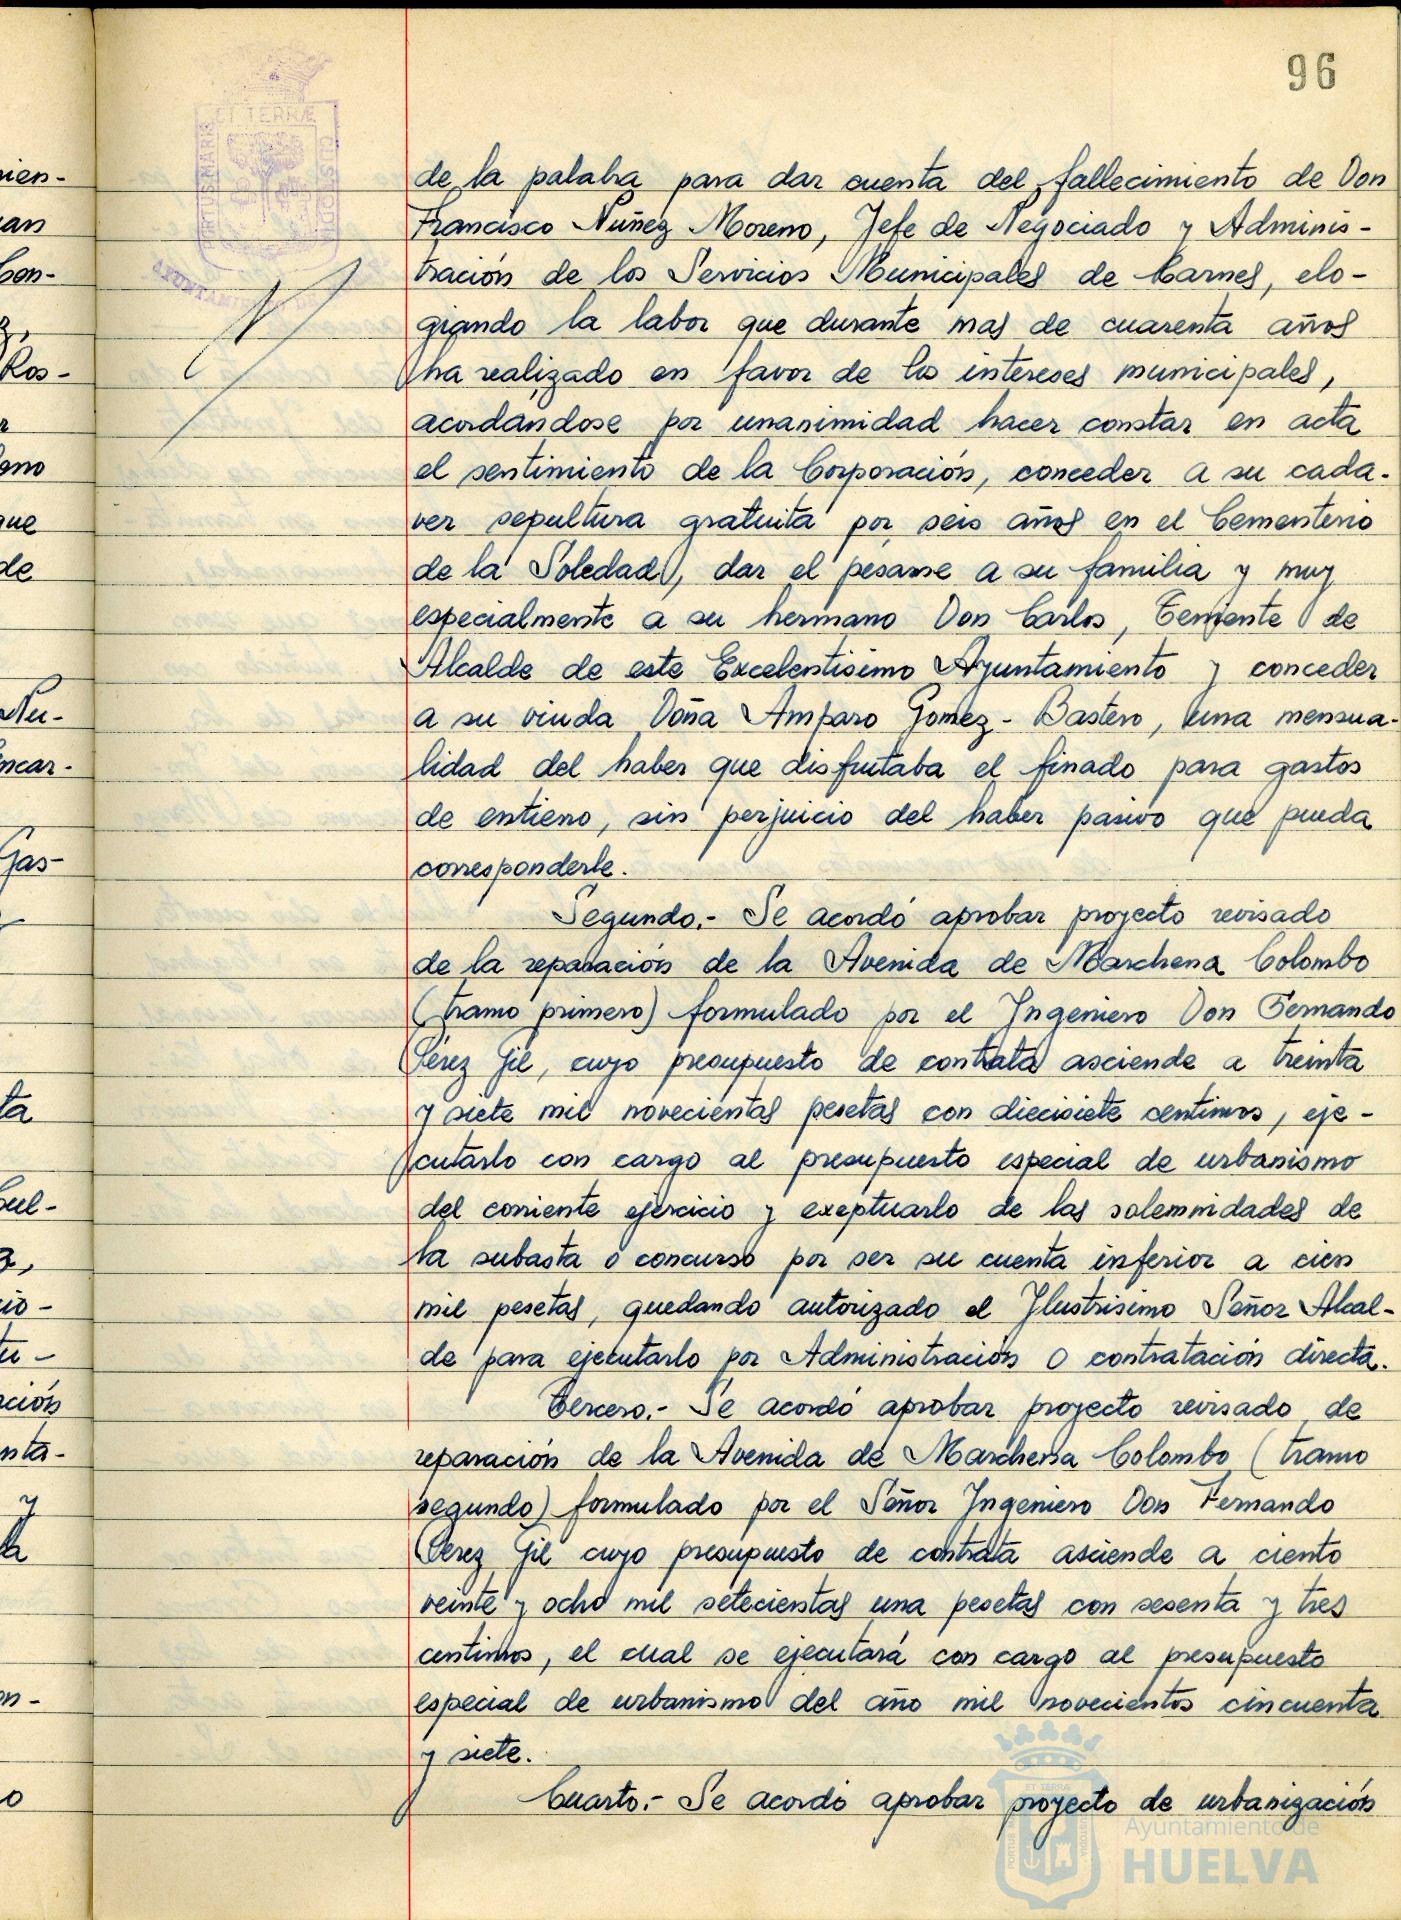 96
ET TERRÆ
PORTUS MARIS
CUSTODIA
AYUNTAMIENTO DE
de la palabra para dar cuenta del fallecimiento de Don
Francisco Nuñez Moreno, Jefe de Negociado y Adminis-
tración de los Servicios Municipales de Carnes, elo-
giando la labor que durante mas de cuarenta años
ha realizado en favor de los intereses municipales,
acordándose por unanimidad hacer constar en acta
el sentimiento de la Corporación, conceder a su cada-
ver sepultura gratuita por seis años en el Cementerio
de la Soledad, dar el pésame a su familia y muy
especialmente a su hermano Don Carlos, Teniente de
Alcalde de este Excelentisimo Ayuntamiento y conceder
a su viuda Doña Amparo Gomez-Bastero, una mensua-
lidad del haber que disfrutaba el finado para gastos
de entierro, sin perjuicio del haber pasivo que pueda
corresponderle.
Segundo.- Se acordó aprobar proyecto revisado
de la reparación de la Avenida de Marchena Colombo
(tramo primero) formulado por el Ingeniero Don Fernando
Pérez Gil, cuyo presupuesto de contrata asciende a treinta
y siete mil novecientas pesetas con diecisiete centimos, eje-
cutarlo con cargo al presupuesto especial de urbanismo
del corriente ejercicio y exeptuarlo de las solemnidades de
la subasta o concurso por ser su cuenta inferior a cien
mil pesetas, quedando autorizado el Ilustrisimo Señor Alcal-
de para ejecutarlo por Administración o contratación directa.
Tercero.- Se acordó aprobar proyecto revisado de
reparación de la Avenida de Marchena Colombo (tramo
segundo) formulado por el Señor Ingeniero Don Fernando
Perez Gil cuyo presupuesto de contrata asciende a ciento
veinte y ocho mil setecientas una pesetas con sesenta y tres
centimos, el cual se ejecutará con cargo al presupuesto
especial de urbanismo del año mil novecientos cincuenta
y siete.
Cuarto.- Se acordó aprobar proyecto de urbanización
Ayuntamiento de
HUELVA